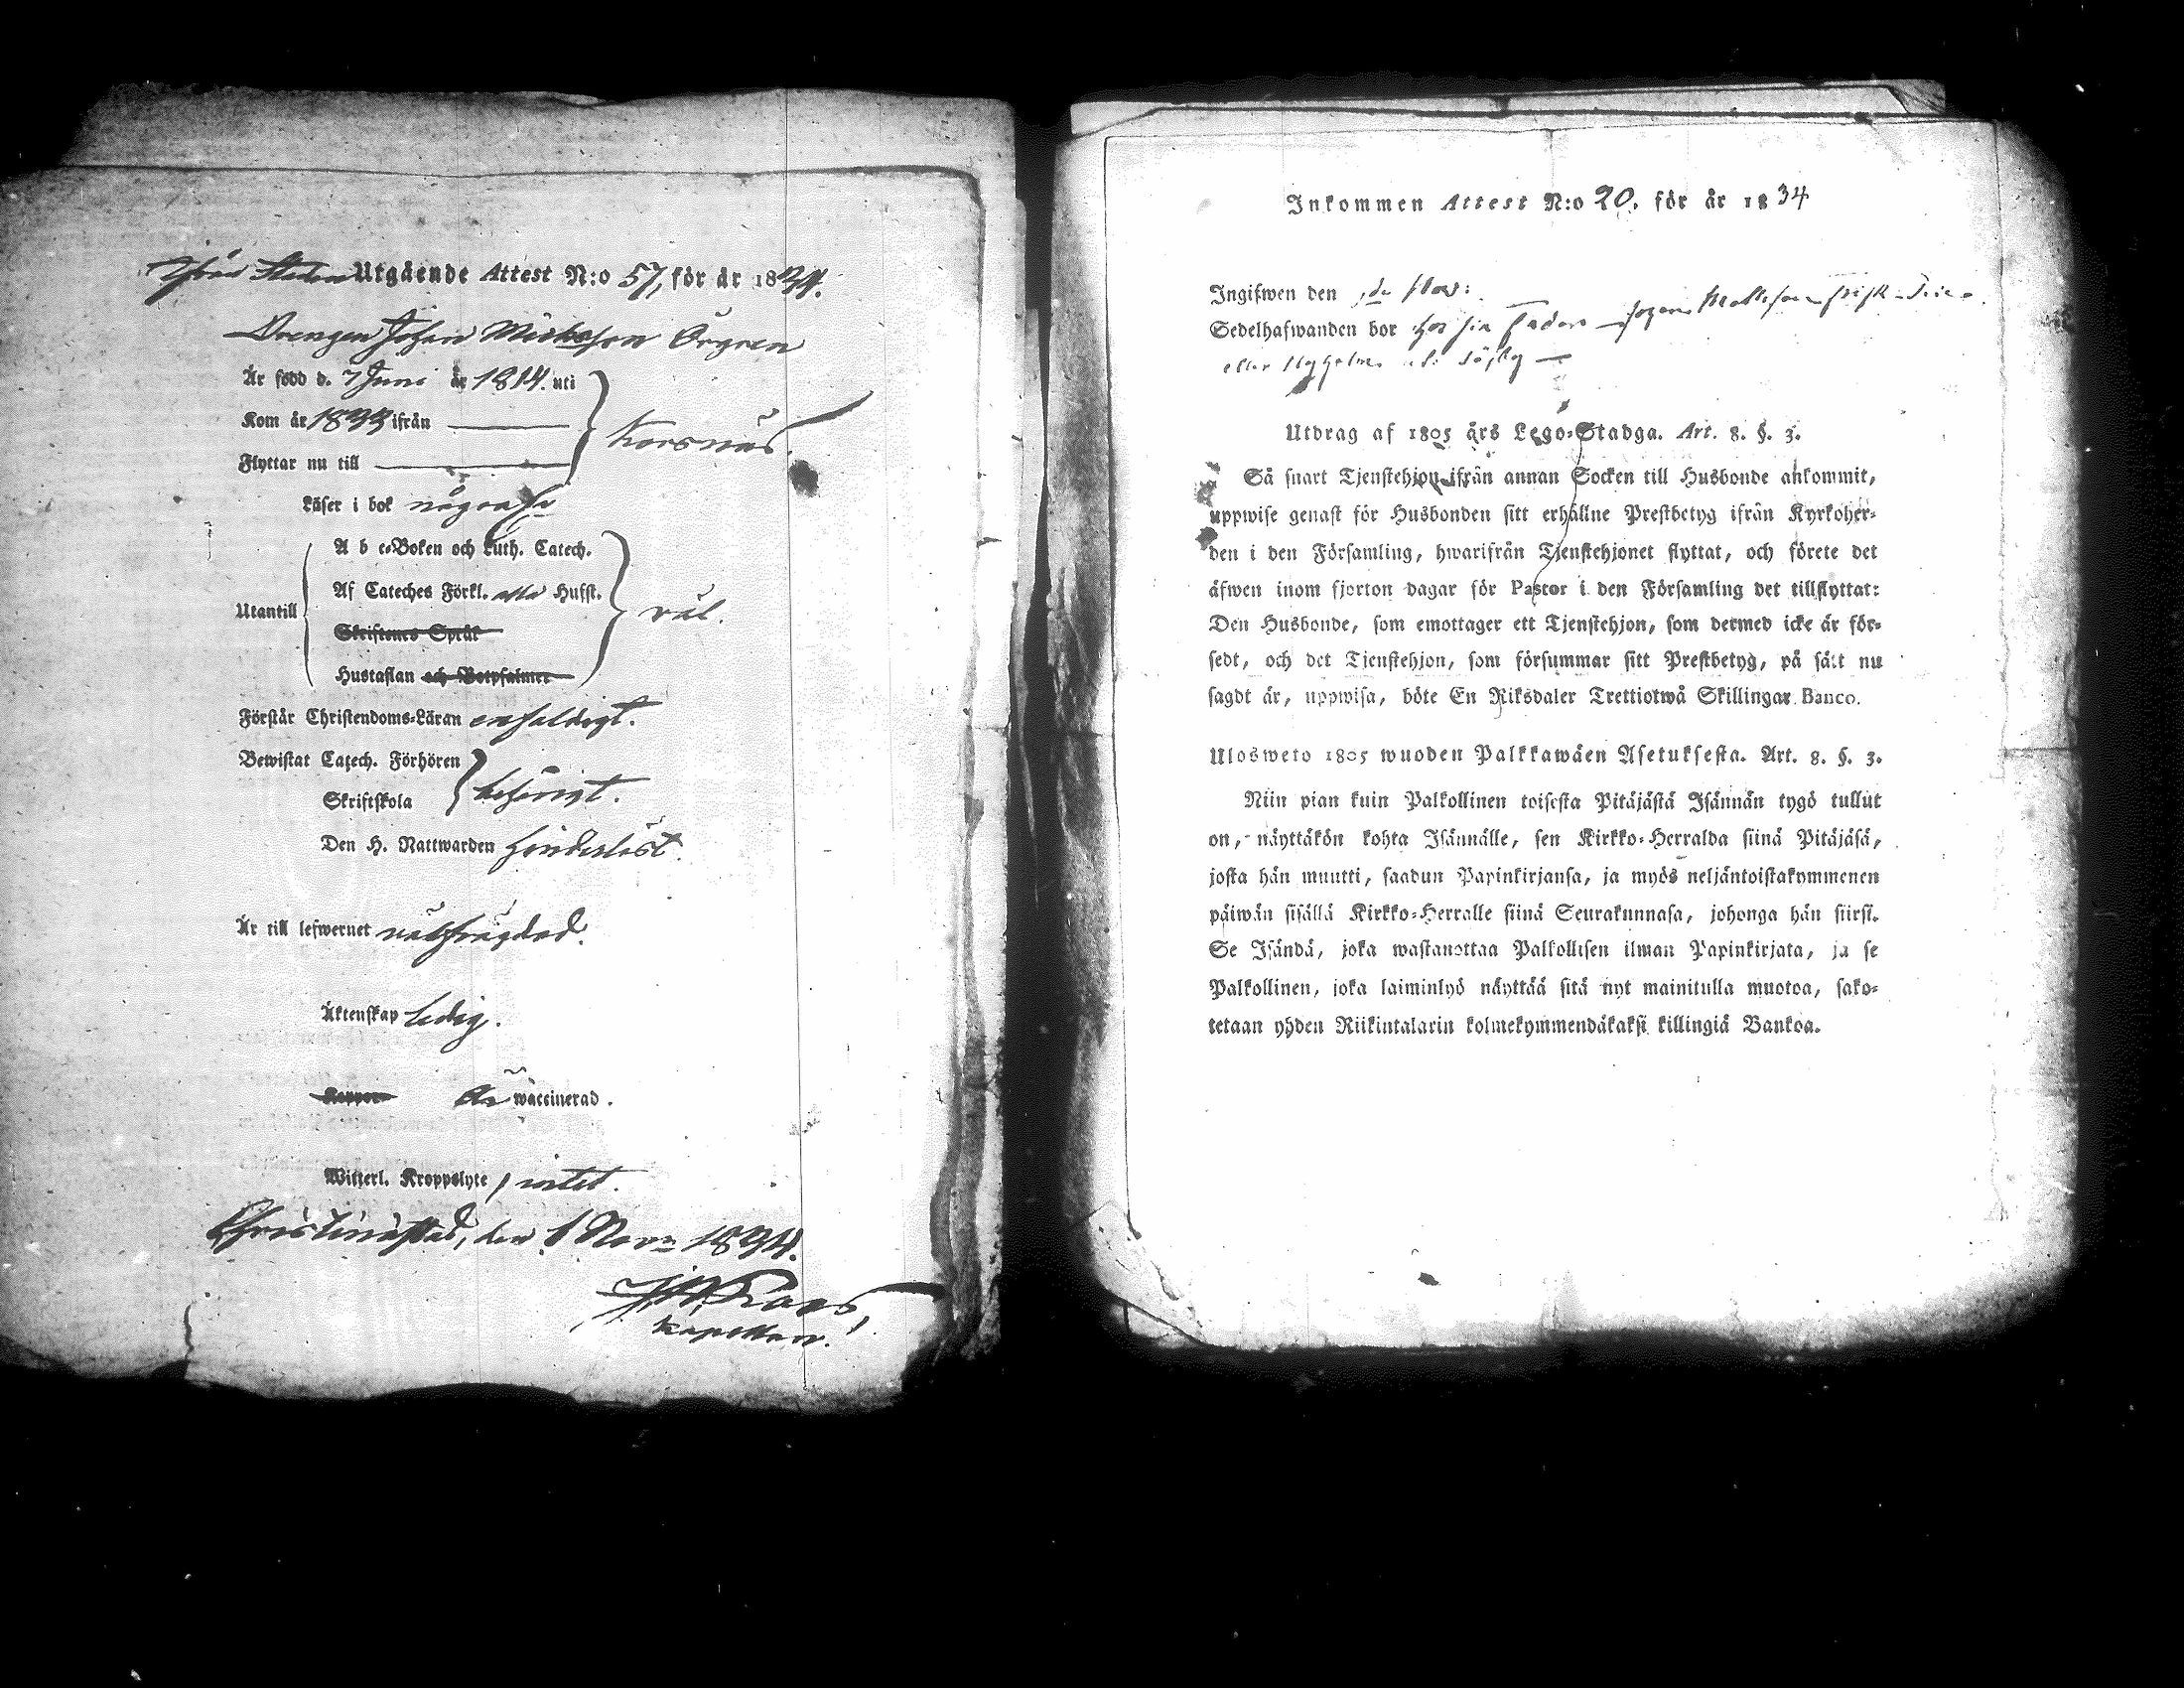 Ifrån Staden Utgående Attest N:o 57, för år 1834.
Drengen Johan Mickelsson Örgren
Är född d. 7 Juni år 1814. uti
Kom år 1833 ifrån
Korsnäs.
Flyttar nu till
Läser i bok någorl.
A b c-Boken och Luth. Catech.
Af Cateches Förkl. alla Hufst.
Utantill
väl.
Skriftenes Språk
Hustaflan och Botpsalmer
Förstår Christendoms-Läran enfaldigt.
Bewistat Catech. Förhören
behörigt.
Skriftskola
Den H. Nattwarden hinderlöst.
Är till lefwernet välfrägdad.
Äktenskap ledig.
Koppor Är waccinerad.
Witterl. Kroppslyte, intet.
Christinæstad, den 1 Nov. 1834.
Kapellan.
Inkommen Attest N:o 20. för år 1834
Ingifwen den Nov:
Sedelhafwanden bor hos sin Fader
eller
Utdrag af 1805 års Lego-Stadga. Art. 8. §. 3.
Så snart Tjenstehjon ifrån annan Socken till Husbonde ankommit,
uppwise genast för Husbonden sitt erhållne Prestbetyg ifrån Kyrkoher-
den i den Församling, hwarifrån Tjenstehjonet flyttat, och förete det
äfwen inom fjorton dagar för Pastor i den Församling det tillflyttat:
Den Husbonde, som emottager ett Tjenstehjon, som dermed icke är för-
sedt, och det Tjenstehjon, som försummar sitt Prestbetyg, på sätt nu
sagdt är, uppwisa, böte En Riksdaler Trettiotwå Skillingar Banco.
Ulosweto 1805 wuoden Palkkawäen Asetuksesta. Art. 8. §. 3.
Niin pian kuin Palkollinen toisesta Pitäjästä Isännän tygö tullut
on, näyttäkön kohta Isännälle, sen Kirkko-Herralda siinä Pitäjäsä,
josta hän muutti, saadun Papinkirjansa, ja myös neljäntoistakymmenen
päiwän sisällä Kirkko-Herralle siinä Seurakunnasa, johonga hän siirsi.
Se Isändä, joka wastanottaa Palkollisen ilman Papinkirjata, ja se
Palkollinen, joka laiminlyö näyttää sitä nyt mainitulla muotoa, sako-
tetaan yhden Riikintalarin kolmekymmendäkaksi killingiä Bankoa.